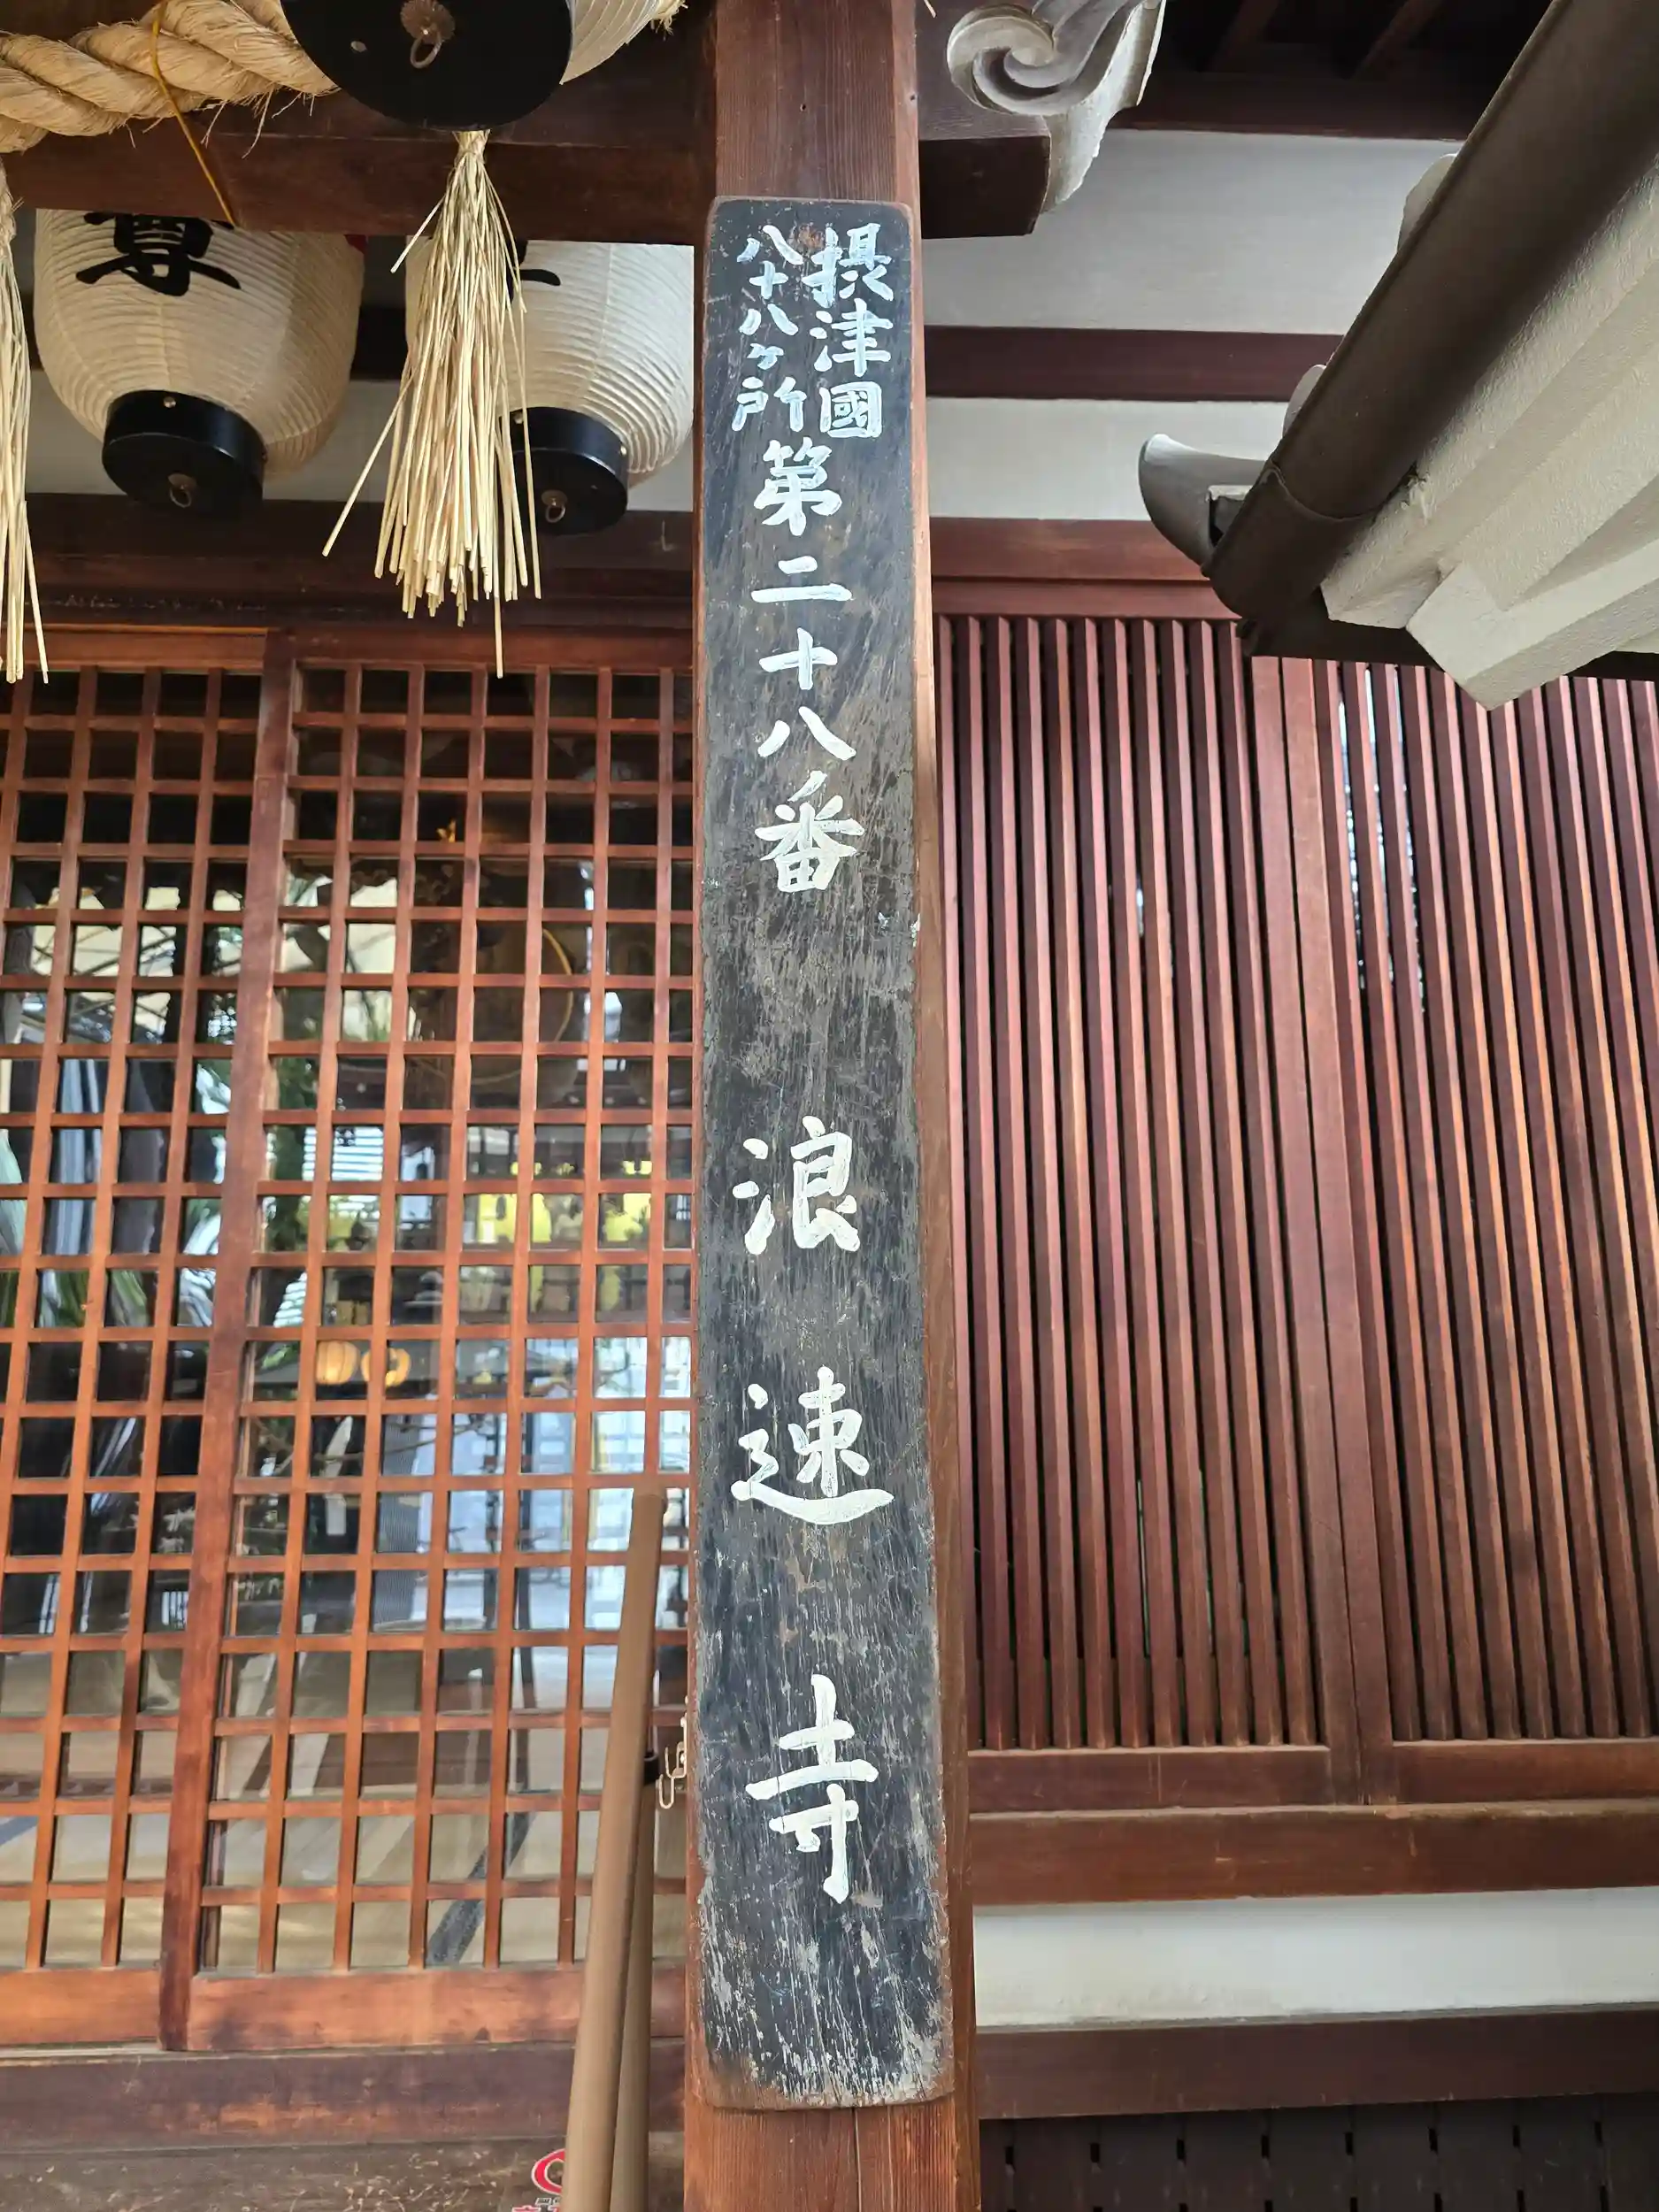 摂津國
八十八ヶ所
第二十八番 浪速寺
尊